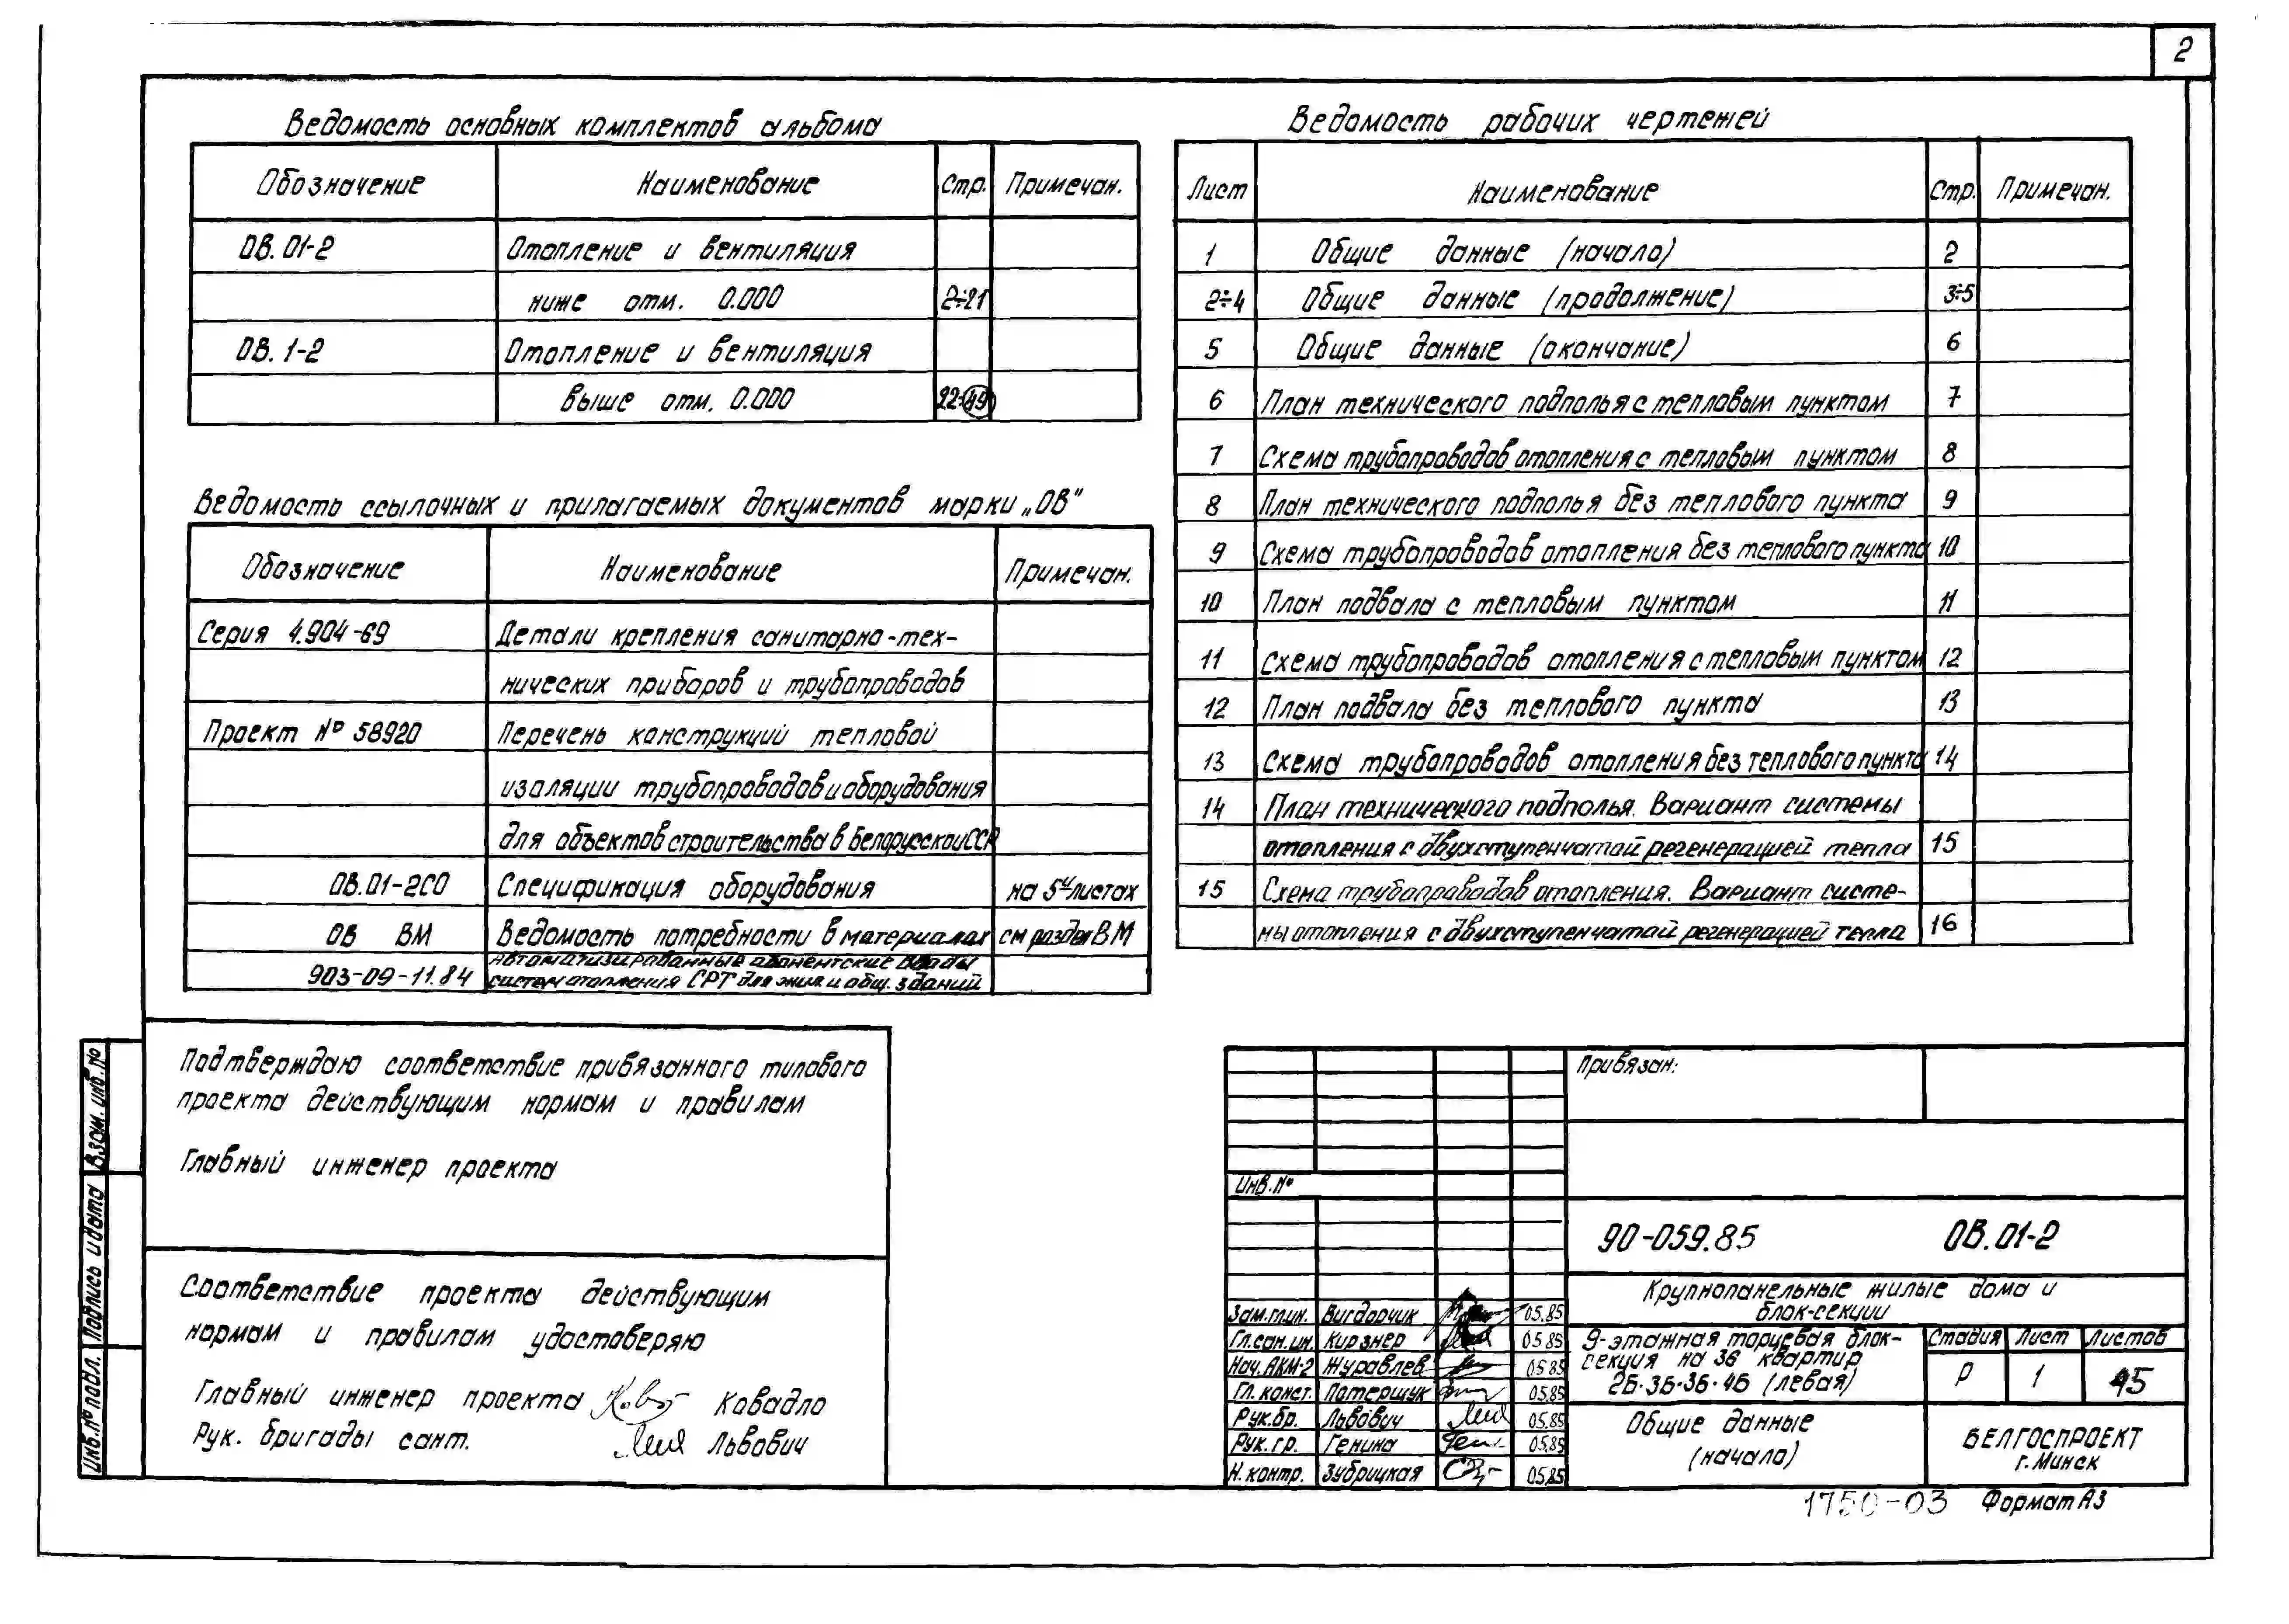 2
Ведомость основных комплектов альбома
Обозначение Наименование Стр. Примечан.
ОВ. 01-2 Отопление и вентиляция
ниже отм. 0.000 2÷21
ОВ. 1-2 Отопление и вентиляция
выше отм. 0.000 22÷49
Ведомость ссылочных и прилагаемых документов марки „ОВ"
Обозначение Наименование Примечан.
Серия 4.904-69 Детали крепления санитарно-тех-
нических приборов и трубопроводов
Проект № 58920 Перечень конструкций тепловой
изоляции трубопроводов и оборудования
для объектов строительства в Белорусской ССР
ОВ.01-2СО Спецификация оборудования на 5и листах
ОВ ВМ Ведомость потребности в материалах см раздел ВМ
903-09-11.84 Автоматизированные абонентские вводы
систем отопления СРТ для жил. и общ. зданий
Ведомость рабочих чертежей
Лист Наименование Стр. Примечан.
1 Общие данные (начало) 2
2÷4 Общие данные (продолжение) 3÷5
5 Общие данные (окончание) 6
6 План технического подполья с тепловым пунктом 7
7 Схема трубопроводов отопления с тепловым пунктом 8
8 План технического подполья без теплового пункта 9
9 Схема трубопроводов отопления без теплового пункта 10
10 План подвала с тепловым пунктом 11
11 Схема трубопроводов отопления с тепловым пунктом 12
12 План подвала без теплового пункта 13
13 Схема трубопроводов отопления без теплового пункта 14
14 План технического подполья. Вариант системы
отопления с двухступенчатой регенерацией тепла 15
15 Схема трубопроводов отопления. Вариант систе-
мы отопления с двухступенчатой регенерацией тепла 16
Подтверждаю соответствие привязанного типового
проекта действующим нормам и правилам
Главный инженер проекта
Соответствие проекта действующим
нормам и правилам удостоверяю
Главный инженер проекта Ковадло
Рук. бригады сант. Львович
Взам. инв. №
Подпись и дата
Инв. № подл.
Привязан:
Инв. №
90-059.85 ОВ.01-2
Крупнопанельные жилые дома и
блок-секции
Зам.гл.ин. Вигдорчик 05.85
Гл.сан.ин. Кирзнер 05.85
Нач. АКМ-2 Журавлев 05.85
Гл. конст. Потершук 05.85
Рук.бр. Львович 05.85
Рук.гр. Генина 05.85
Н. контр. Зубрицкая 05.85
9-этажная торцевая блок-
секция на 36 квартир
2Б·3Б·3Б·4Б (левая)
Стадия Лист Листов
Р 1 15
Общие данные
(начало)
БЕЛГОСПРОЕКТ
г. Минск
1750-03 Формат А3